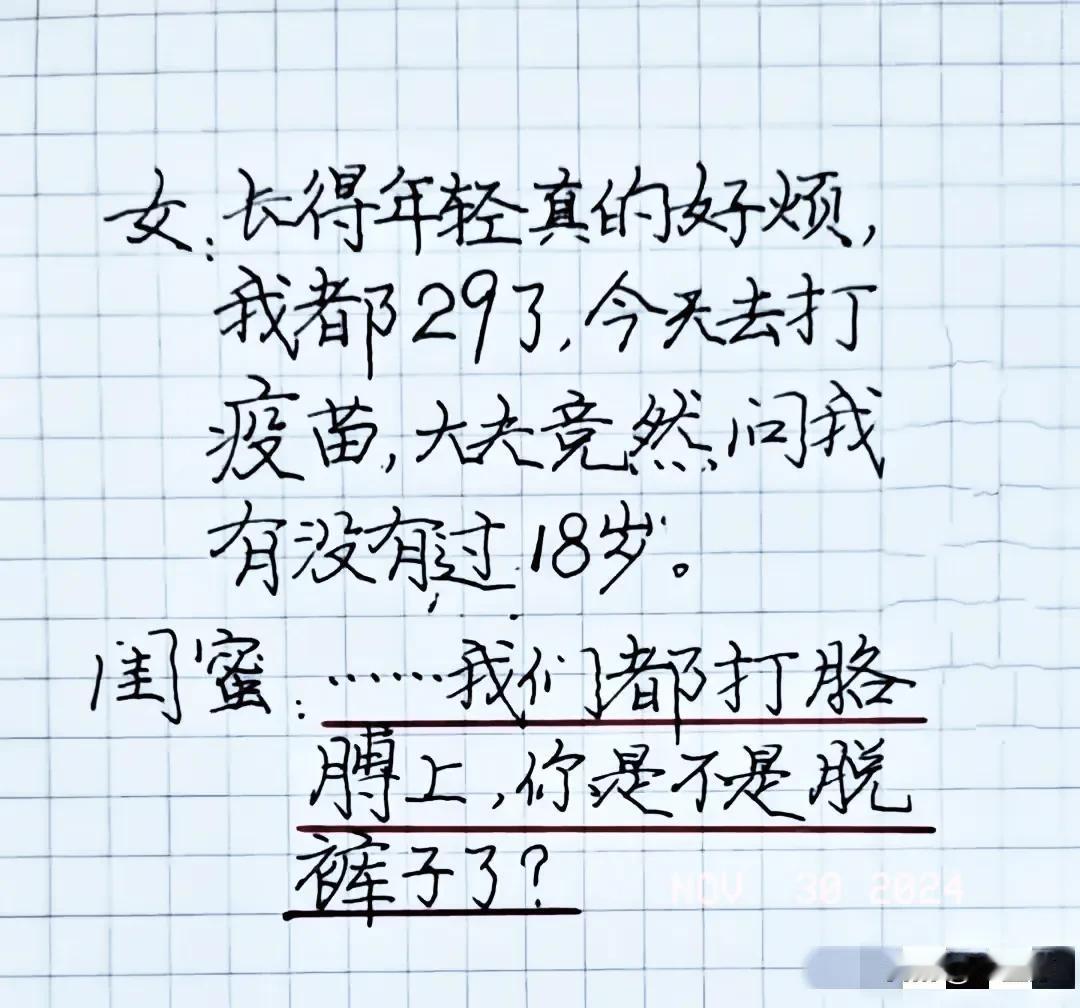 女:长得年轻真的好烦,
我都29了,今天去打
疫苗,大夫竟然问我
有没有过18岁。
闺蜜:……我们都打胳
膊上,你是不是脱
裤子了?
NOV 30 2024